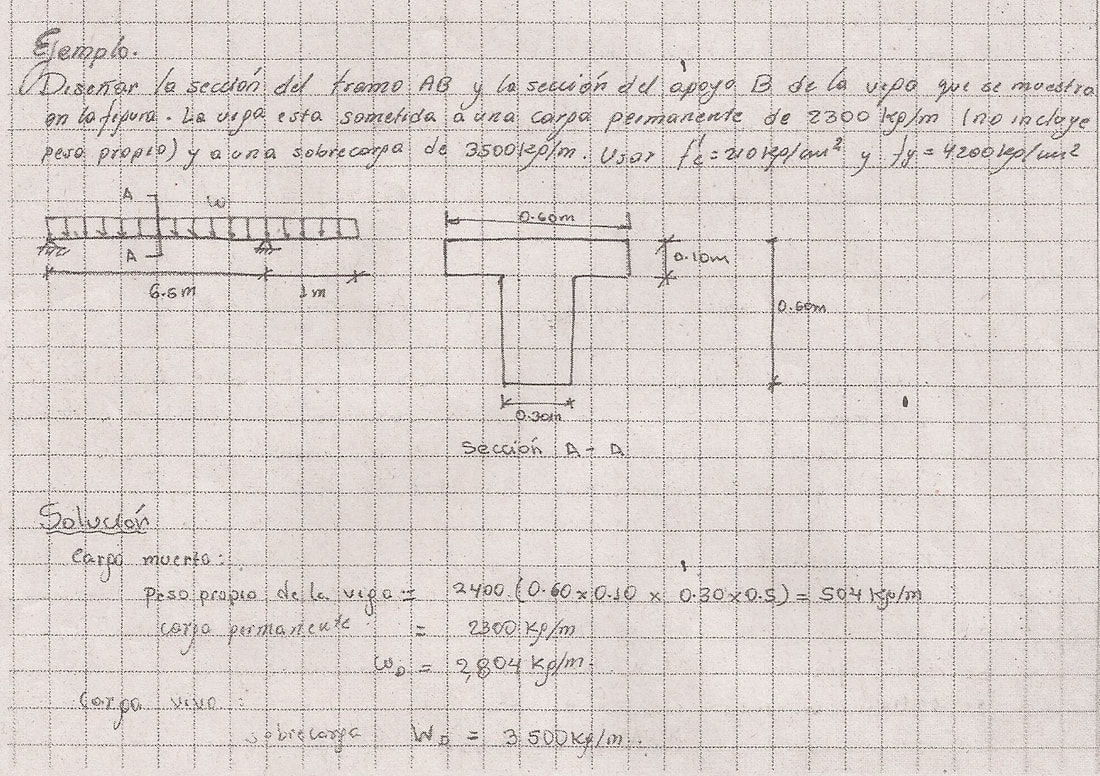 Ejemplo.
Diseñar la sección del tramo AB y la sección del apoyo B de la viga que se muestra
en la figura. La viga esta sometida a una carga permanente de 2300 kg/m (no incluye
peso propio) y a una sobrecarga de 3500 kg/m. Usar f'c = 210 kg/cm² y fy = 4200 kg/cm²
A
W
A
6.5m
1m
0.60m
0.10m
0.60m
0.30m
Sección A-A
Solución
Carga muerta:
peso propio de la viga = 2400 (0.60 x 0.10 x 0.30 x 0.5) = 504 kg/m
carga permanente = 2300 kg/m
WD = 2,804 kg/m.
Carga viva:
sobrecarga WD = 3500 kg/m.